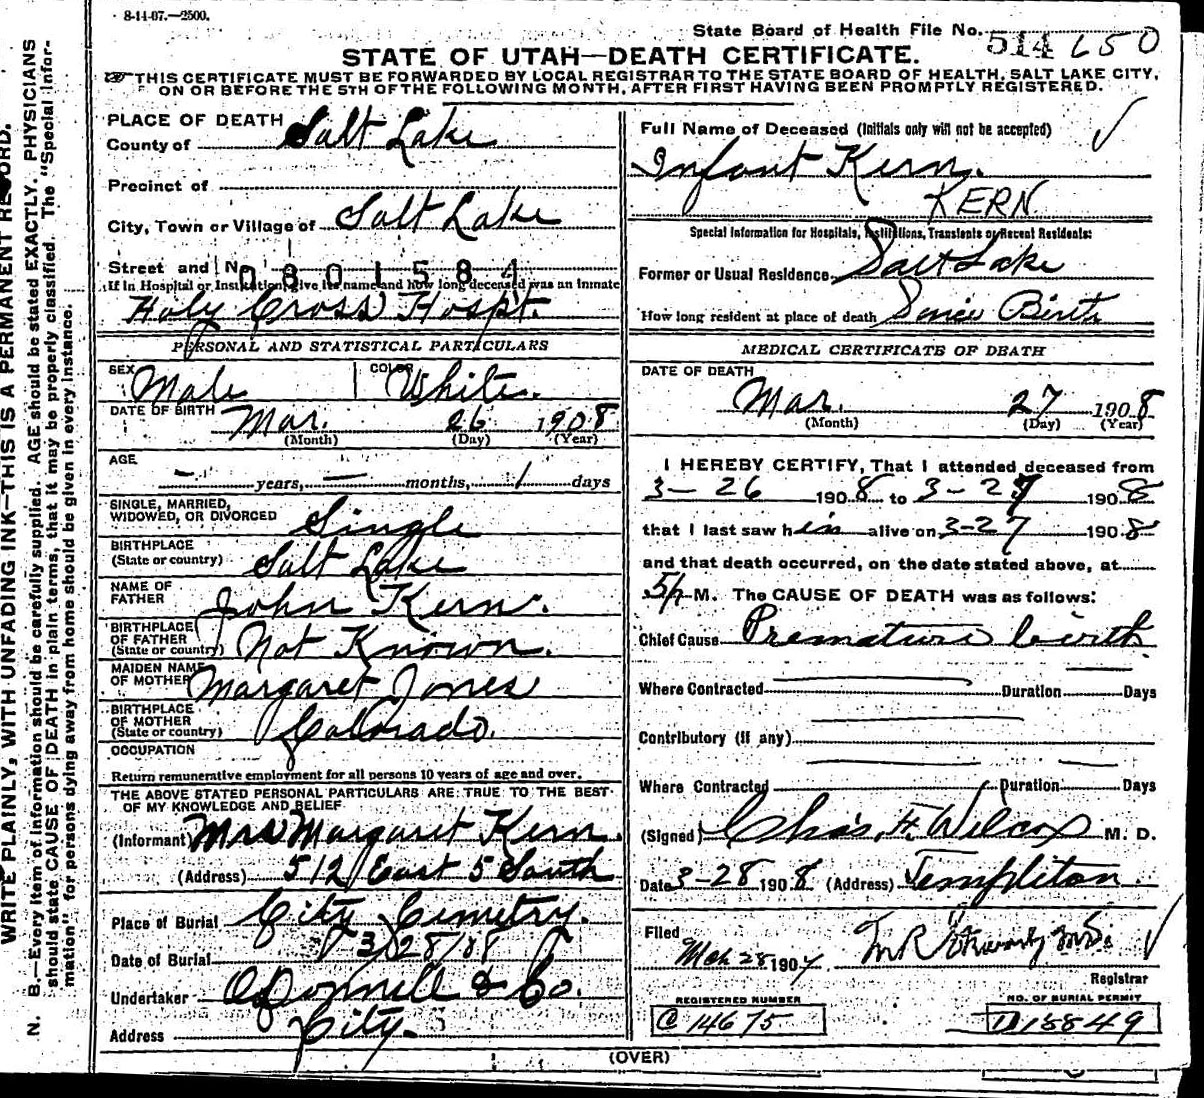 8-14-07.—2500.
State Board of Health File No. 514 650
STATE OF UTAH—DEATH CERTIFICATE.
THIS CERTIFICATE MUST BE FORWARDED BY LOCAL REGISTRAR TO THE STATE BOARD OF HEALTH, SALT LAKE CITY,
ON OR BEFORE THE 5TH OF THE FOLLOWING MONTH, AFTER FIRST HAVING BEEN PROMPTLY REGISTERED.
WRITE PLAINLY, WITH UNFADING INK—THIS IS A PERMANENT RECORD.
N. B.—Every item of information should be carefully supplied. AGE should be stated EXACTLY. PHYSICIANS
should state CAUSE OF DEATH in plain terms, that it may be properly classified. The "Special Infor-
mation" for persons dying away from home should be given in every instance.
PLACE OF DEATH
County of Salt Lake
Precinct of
City, Town or Village of Salt Lake
Street and No.
0801584
If in Hospital or Institution, give its name and how long deceased was an inmate
Holy Cross Hospt.
PERSONAL AND STATISTICAL PARTICULARS
SEX Male COLOR White.
DATE OF BIRTH Mar. 26 1908
(Month) (Day) (Year)
AGE
— years, — months, 1 days
SINGLE, MARRIED,
WIDOWED, OR DIVORCED Single
BIRTHPLACE
(State or country) Salt Lake
NAME OF
FATHER John Kern.
BIRTHPLACE
OF FATHER
(State or country) Not Known.
MAIDEN NAME
OF MOTHER Margaret Jones
BIRTHPLACE
OF MOTHER
(State or country) Colorado.
OCCUPATION
Return remunerative employment for all persons 10 years of age and over.
THE ABOVE STATED PERSONAL PARTICULARS ARE TRUE TO THE BEST
OF MY KNOWLEDGE AND BELIEF
(Informant) Mrs Margaret Kern.
(Address) 512 East 5 South
Place of Burial City Cemetry.
Date of Burial 3/28/08
Undertaker O'Donnell & Co.
Address City.
Full Name of Deceased (Initials only will not be accepted)
Infant Kern.
KERN
Special Information for Hospitals, Institutions, Transients or Recent Residents:
Former or Usual Residence Salt Lake
How long resident at place of death Since Birth
MEDICAL CERTIFICATE OF DEATH
DATE OF DEATH
Mar. 27 1908
(Month) (Day) (Year)
I HEREBY CERTIFY, That I attended deceased from
3-26 1908 to 3-27 1908
that I last saw him alive on 3-27 1908
and that death occurred, on the date stated above, at
5 P M. The CAUSE OF DEATH was as follows:
Chief Cause Premature birth
Where Contracted Duration Days
Contributory (if any)
Where Contracted Duration Days
(Signed) Chas. F. Wilcox M. D.
Date 3-28 1908 (Address) Templeton.
Filed
Mch 28 1907
Registrar
REGISTERED NUMBER
C 14675
NO. OF BURIAL PERMIT
D 18849
(OVER)